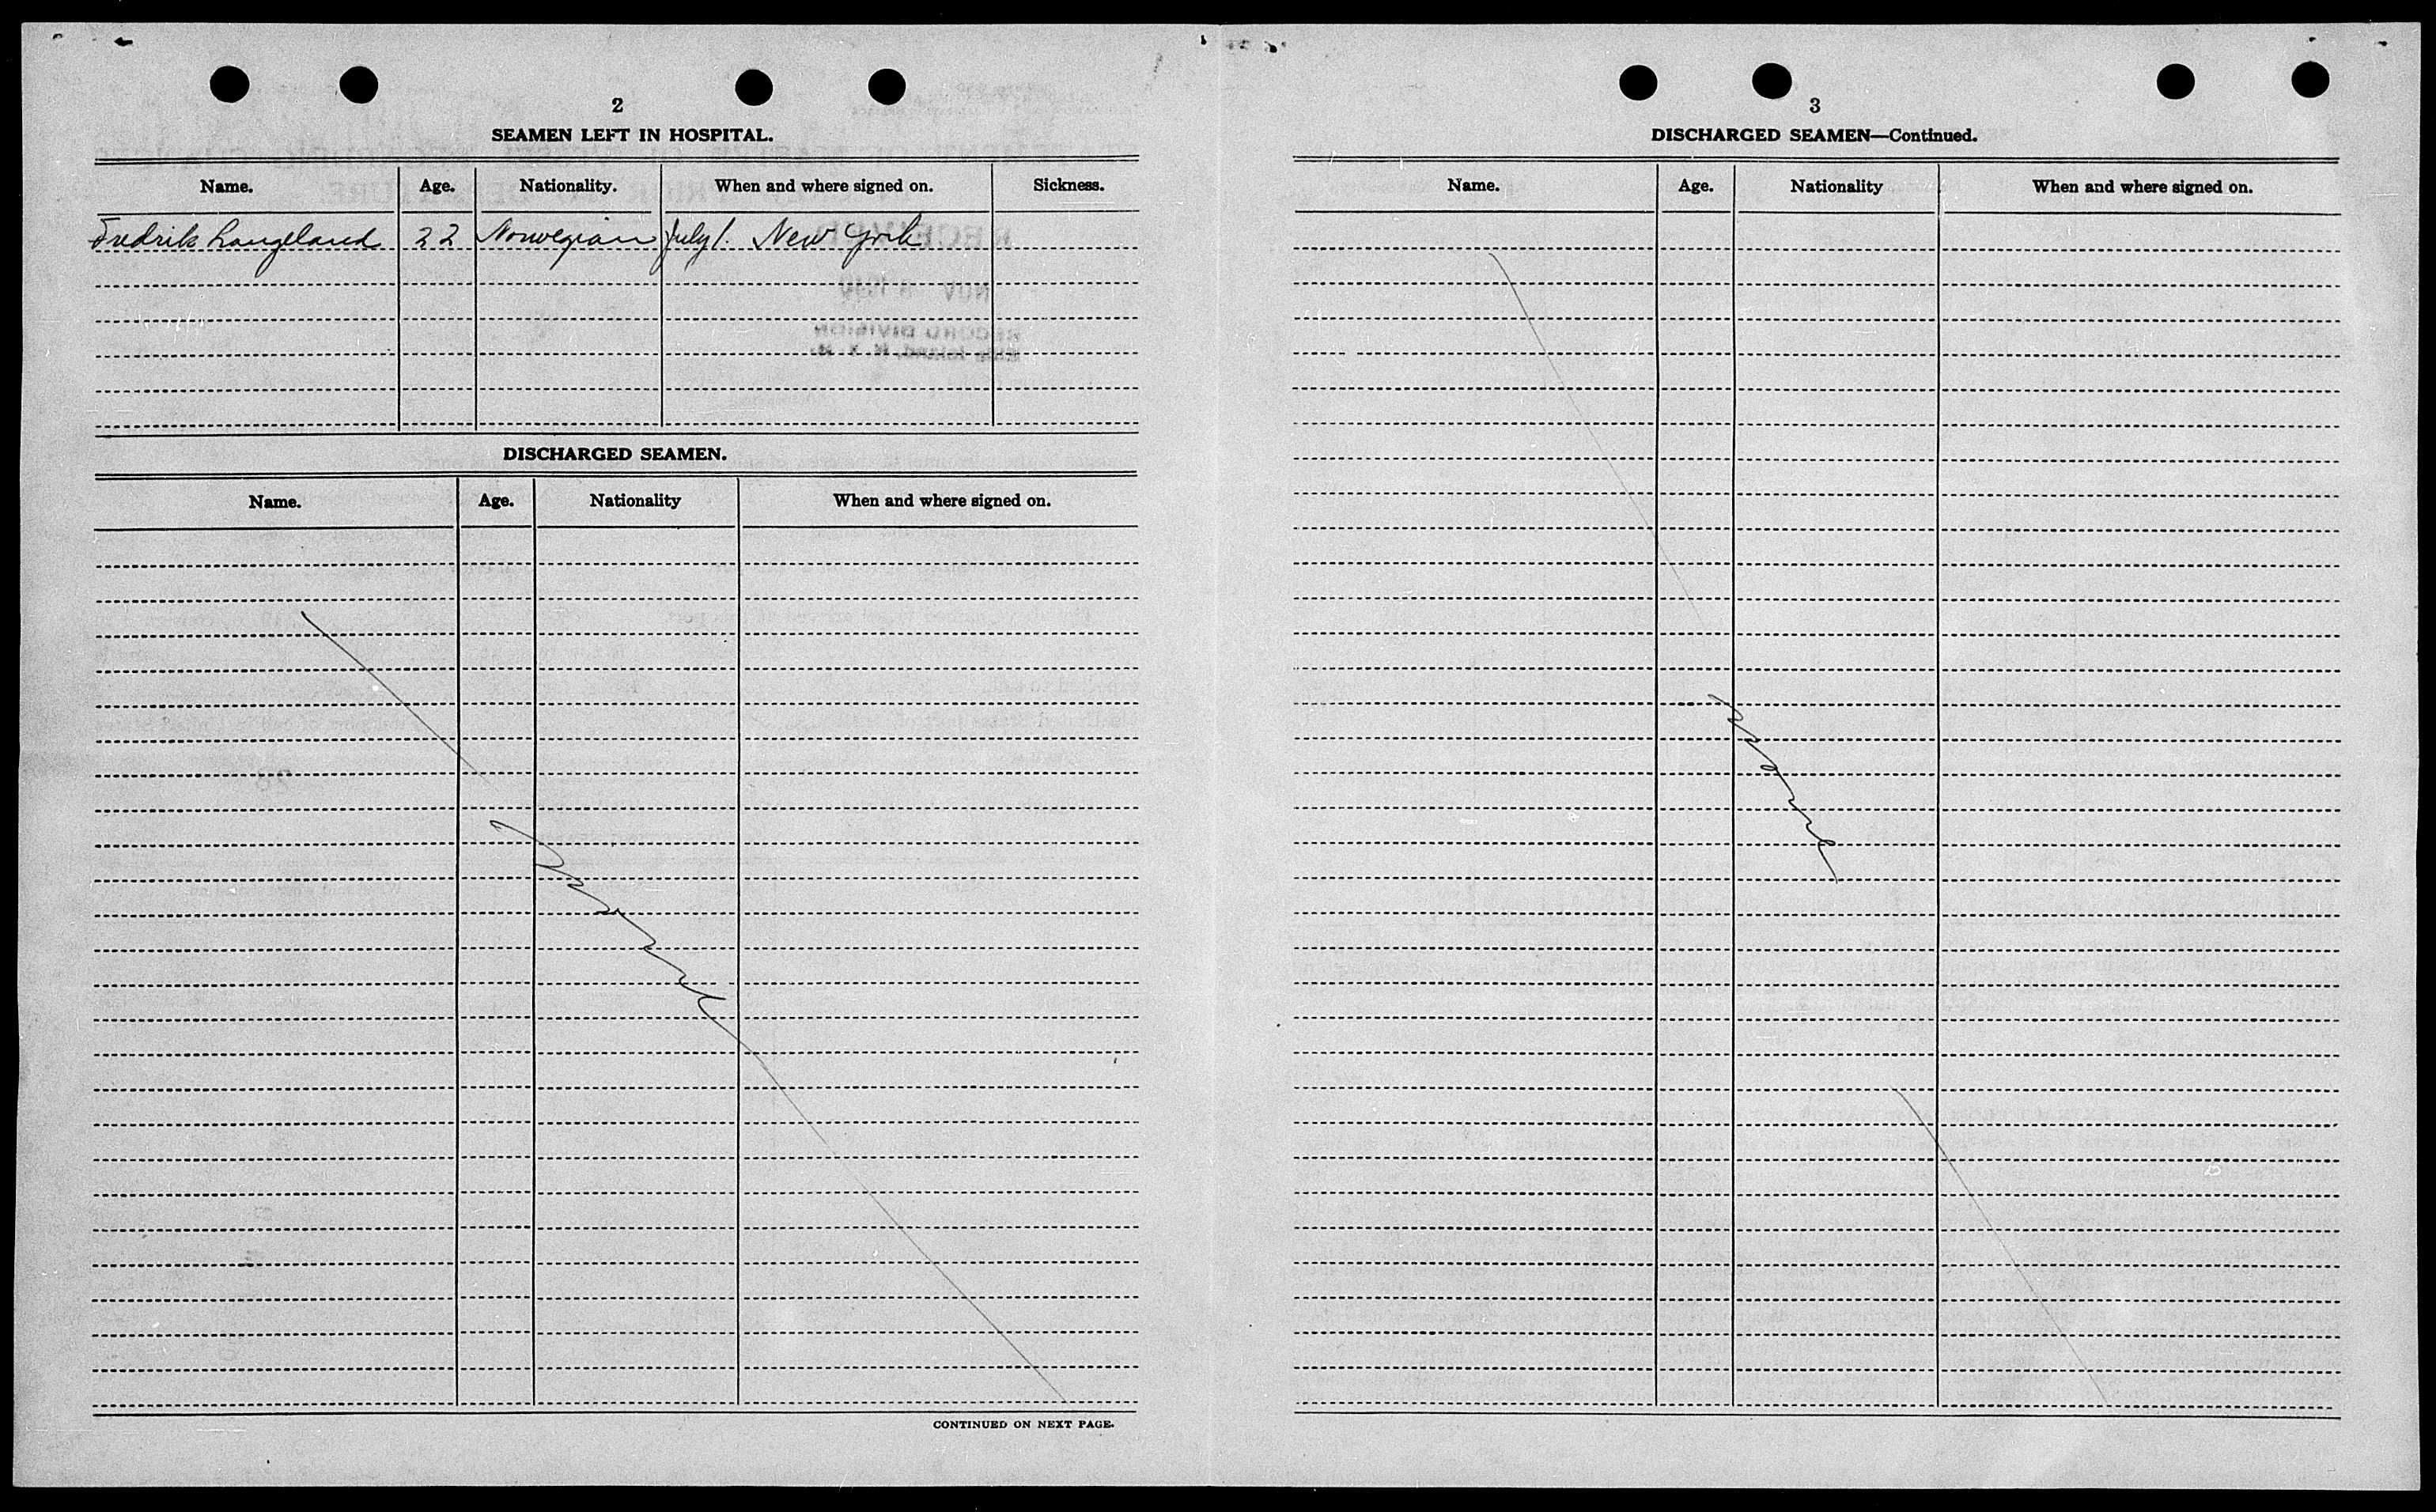 2
SEAMEN LEFT IN HOSPITAL.
Name. Age. Nationality. When and where signed on. Sickness.
Fredrik Langeland 22 Norwegian July 1. New York
DISCHARGED SEAMEN.
Name. Age. Nationality When and where signed on.
CONTINUED ON NEXT PAGE.
3
DISCHARGED SEAMEN—Continued.
Name. Age. Nationality When and where signed on.